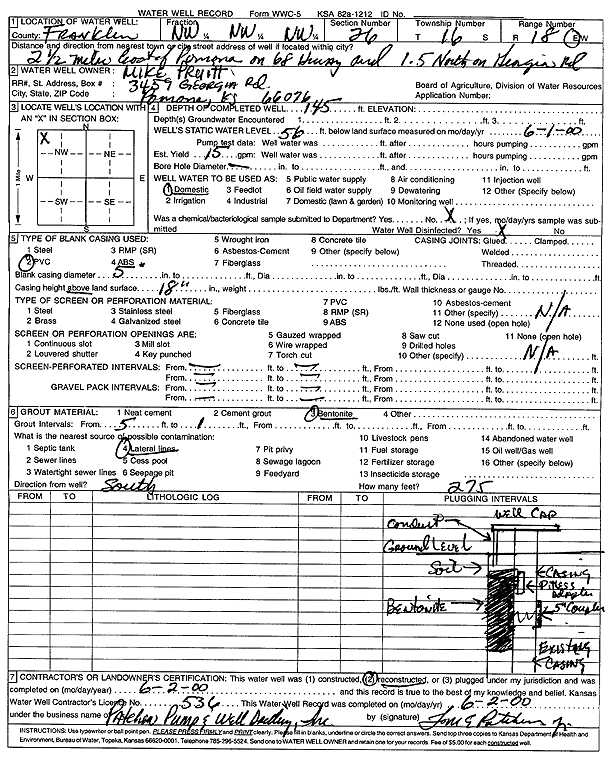 WATER WELL RECORD Form WWC-5 KSA 82a-1212 ID No.
1 LOCATION OF WATER WELL: Fraction Section Number Township Number Range Number
County: Franklin NW ¼ NW ¼ NW ¼ 26 T 16 S R 18 E/W
Distance and direction from nearest town or city street address of well if located within city?
2 1/2 miles West of Pomona on 68 Hiway and 1.5 North on Georgia Rd
2 WATER WELL OWNER: MIKE PRUITT
RR#, St. Address, Box # : 3459 Georgia Rd. Board of Agriculture, Division of Water Resources
City, State, ZIP Code : Pomona, KS 66076 Application Number:
3 LOCATE WELL'S LOCATION WITH AN "X" IN SECTION BOX:
N
X
NW NE
W E
SW SE
S
1 Mile
4 DEPTH OF COMPLETED WELL 145 ft. ELEVATION:
Depth(s) Groundwater Encountered 1. ft. 2. ft. 3. ft.
WELL'S STATIC WATER LEVEL 56 ft. below land surface measured on mo/day/yr 6-1-00
Pump test data: Well water was ft. after hours pumping gpm
Est. Yield 15 gpm: Well water was ft. after hours pumping gpm
Bore Hole Diameter in. to ft., and in. to ft.
WELL WATER TO BE USED AS: 5 Public water supply 8 Air conditioning 11 Injection well
1 Domestic 3 Feedlot 6 Oil field water supply 9 Dewatering 12 Other (Specify below)
2 Irrigation 4 Industrial 7 Domestic (lawn & garden) 10 Monitoring well
Was a chemical/bacteriological sample submitted to Department? Yes No X ; If yes, mo/day/yrs sample was submitted
Water Well Disinfected? Yes X No
5 TYPE OF BLANK CASING USED: 5 Wrought iron 8 Concrete tile CASING JOINTS: Glued Clamped
1 Steel 3 RMP (SR) 6 Asbestos-Cement 9 Other (specify below) Welded
2 PVC 4 ABS 7 Fiberglass Threaded
Blank casing diameter 5 in. to ft., Dia in. to ft., Dia in. to ft.
Casing height above land surface 18" in., weight lbs./ft. Wall thickness or gauge No.
TYPE OF SCREEN OR PERFORATION MATERIAL: 7 PVC 10 Asbestos-cement
1 Steel 3 Stainless steel 5 Fiberglass 8 RMP (SR) 11 Other (specify) N/A
2 Brass 4 Galvanized steel 6 Concrete tile 9 ABS 12 None used (open hole)
SCREEN OR PERFORATION OPENINGS ARE: 5 Gauzed wrapped 8 Saw cut 11 None (open hole)
1 Continuous slot 3 Mill slot 6 Wire wrapped 9 Drilled holes
2 Louvered shutter 4 Key punched 7 Torch cut 10 Other (specify) N/A
SCREEN-PERFORATED INTERVALS: From ft. to ft., From ft. to ft.
From ft. to ft., From ft. to ft.
GRAVEL PACK INTERVALS: From ft. to ft., From ft. to ft.
From ft. to ft., From ft. to ft.
6 GROUT MATERIAL: 1 Neat cement 2 Cement grout 3 Bentonite 4 Other
Grout Intervals: From 5 ft. to 1 ft., From ft. to ft., From ft. to ft.
What is the nearest source of possible contamination: 10 Livestock pens 14 Abandoned water well
1 Septic tank 4 Lateral lines 7 Pit privy 11 Fuel storage 15 Oil well/Gas well
2 Sewer lines 5 Cess pool 8 Sewage lagoon 12 Fertilizer storage 16 Other (specify below)
3 Watertight sewer lines 6 Seepage pit 9 Feedyard 13 Insecticide storage
Direction from well? South How many feet? 275
FROM TO LITHOLOGIC LOG FROM TO PLUGGING INTERVALS
WELL CAP
CONDUIT
GROUND LEVEL
Soil
CASING
PITLESS
BENTONITE
5" Coupler
EXISTING
CASING
7 CONTRACTOR'S OR LANDOWNER'S CERTIFICATION: This water well was (1) constructed, (2) reconstructed, or (3) plugged under my jurisdiction and was
completed on (mo/day/year) 6-2-00 and this record is true to the best of my knowledge and belief. Kansas
Water Well Contractor's Licence No. 536 This Water Well Record was completed on (mo/day/yr) 6-2-00
under the business name of Pump & Well Drilling, Inc by (signature)
INSTRUCTIONS: Use typewriter or ball point pen. PLEASE PRESS FIRMLY and PRINT clearly. Please fill in blanks, underline or circle the correct answers. Send top three copies to Kansas Department of Health and
Environment, Bureau of Water, Topeka, Kansas 66620-0001. Telephone 785-296-5524. Send one to WATER WELL OWNER and retain one for your records. Fee of $5.00 for each constructed well.